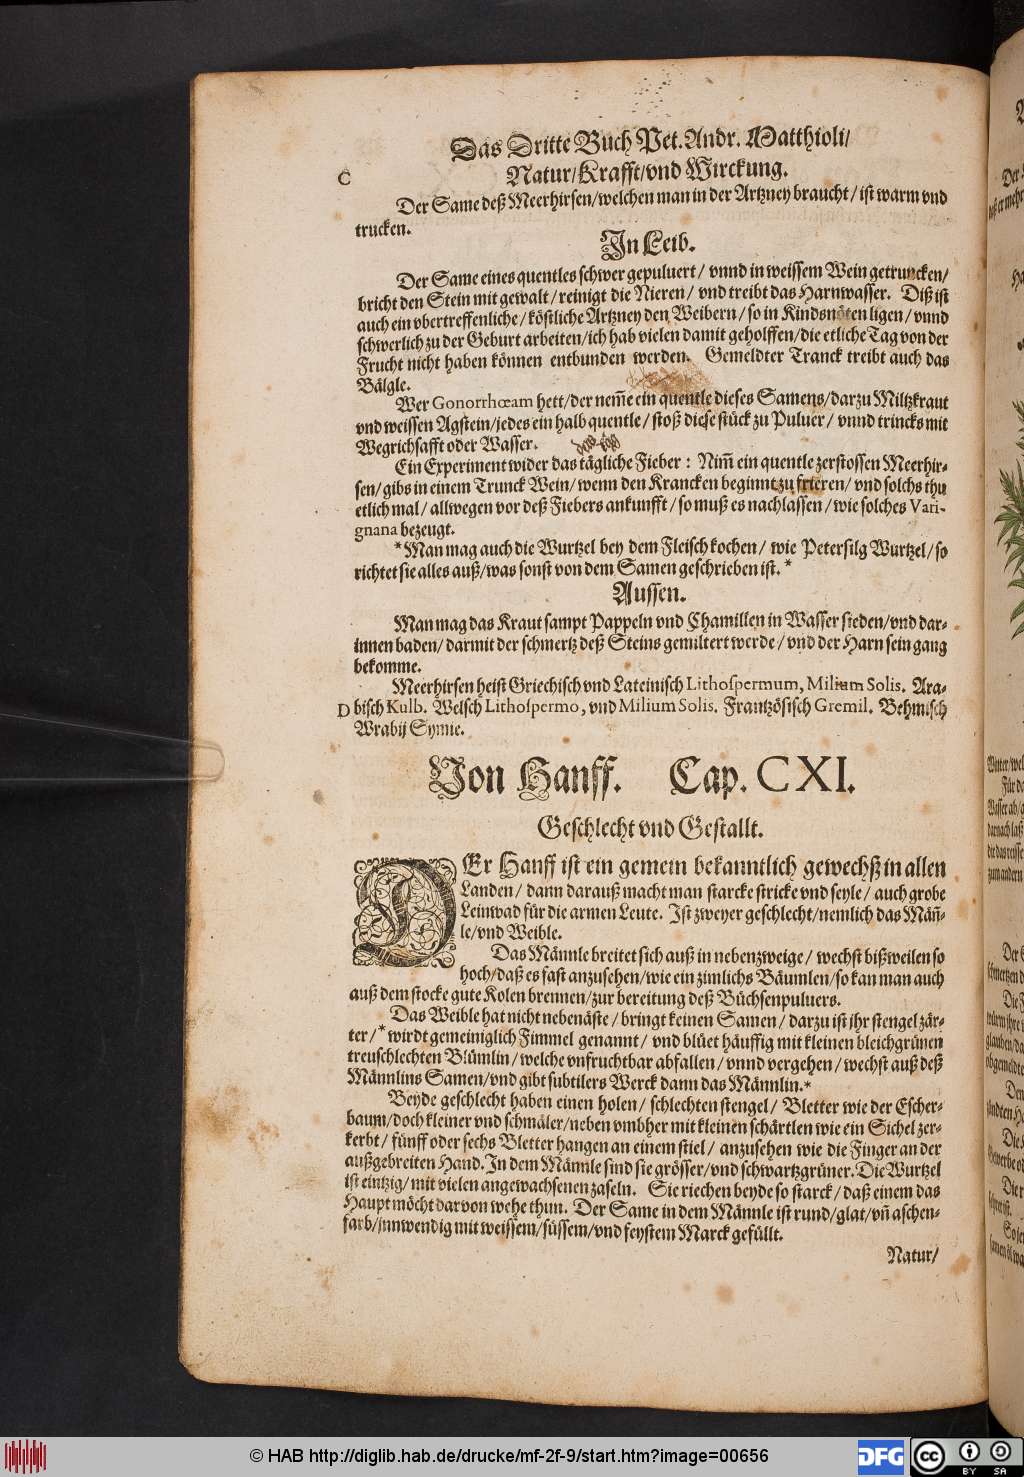 Das Dritte Buch Pet. Andr. Matthioli/
Natur/Krafft/vnd Wirckung.
C
Der Same deß Meerhirsen/welchen man in der Artzney braucht/ ist warm vnd
trucken.
In Leib.
Der Same eines quentles schwer gepuluert/ vnnd in weissem Wein getruncken/
bricht den Stein mit gewalt/ reinigt die Nieren/ vnd treibt das Harnwasser. Diß ist
auch ein vbertreffenliche/ köstliche Artzney den Weibern/ so in Kindsnöten ligen/ vnnd
schwerlich zu der Geburt arbeiten/ich hab vielen damit geholffen/die etliche Tag von der
Frucht nicht haben können entbunden werden. Gemeldter Tranck treibt auch das
Bälgle.
Wer Gonorrhœam hett/der nem̃e ein quentle dieses Samens/darzu Miltzkraut
vnd weissen Agstein/jedes ein halb quentle/ stoß diese stück zu Puluer/ vnnd trincks mit
Wegrichsafft oder Wasser.
Ein Experiment wider das tägliche Fieber: Nim̃ ein quentle zerstossen Meerhir-
sen/gibs in einem Trunck Wein/wenn den Krancken beginnt zu frieren/ vnd solchs thu
etlich mal/ allwegen vor deß Fiebers ankunfft/ so muß es nachlassen/ wie solches Vari-
gnana bezeugt.
*Man mag auch die Wurtzel bey dem Fleisch kochen/ wie Petersilg Wurtzel/so
richtet sie alles auß/was sonst von dem Samen geschrieben ist.*
Aussen.
Man mag das Kraut sampt Pappeln vnd Chamillen in Wasser sieden/vnd dar-
innen baden/ darmit der schmertz deß Steins gemiltert werde/ vnd der Harn sein gang
bekomme.
Meerhirsen heist Griechisch vnd Lateinisch Lithospermum, Milium Solis. Ara-
D bisch Kulb. Welsch Lithospermo, vnd Milium Solis. Frantzösisch Gremil. Behmisch
Wrabij Symie.
Von Hanff. Cap. CXI.
Geschlecht vnd Gestallt.
DEr Hanff ist ein gemein bekanntlich gewechß in allen
Landen/ dann darauß macht man starcke stricke vnd seyle/ auch grobe
Leinwad für die armen Leute. Ist zweyer geschlecht/nemlich das Mäñ-
le/vnd Weible.
Das Männle breitet sich auß in nebenzweige/ wechst bißweilen so
hoch/daß es fast anzusehen/wie ein zimlichs Bäumlen/so kan man auch
auß dem stocke gute Kolen brennen/zur bereitung deß Büchsenpuluers.
Das Weible hat nicht nebenäste/ bringt keinen Samen/ darzu ist ihr stengel zär-
ter/* wirdt gemeiniglich Fimmel genannt/ vnd blüet häuffig mit kleinen bleichgrünen
treuschlechten Blümlin/ welche vnfruchtbar abfallen/ vnnd vergehen/ wechst auß deß
Männlins Samen/vnd gibt subtilers Werck dann das Männlin.*
Beyde geschlecht haben einen holen/ schlechten stengel/ Bletter wie der Escher-
baum/doch kleiner vnd schmäler/neben vmbher mit kleinen schärtlen wie ein Sichel zer-
kerbt/ fünff oder sechs Bletter hangen an einem stiel/ anzusehen wie die Finger an der
außgebreiten Hand. In dem Männle sind sie grösser/vnd schwartzgrüner. Die Wurtzel
ist eintzig/ mit vielen angewachsenen zaseln. Sie riechen beyde so starck/ daß einem das
Haupt möcht darvon wehe thun. Der Same in dem Männle ist rund/glat/vñ aschen-
farb/innwendig mit weissem/süssem/vnd feystem Marck gefüllt.
Natur/
© HAB http://diglib.hab.de/drucke/mf-2f-9/start.htm?image=00656
DFG
cc
BY SA